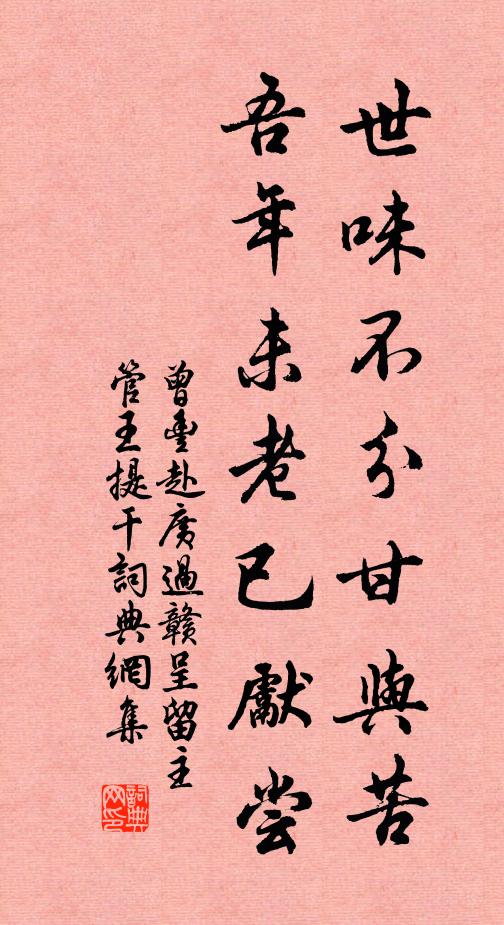 世味不分甘與苦
吾年未老已猒尝
曾豊赴廣過贛呈留主
管王提干詞典網集
詞典网印